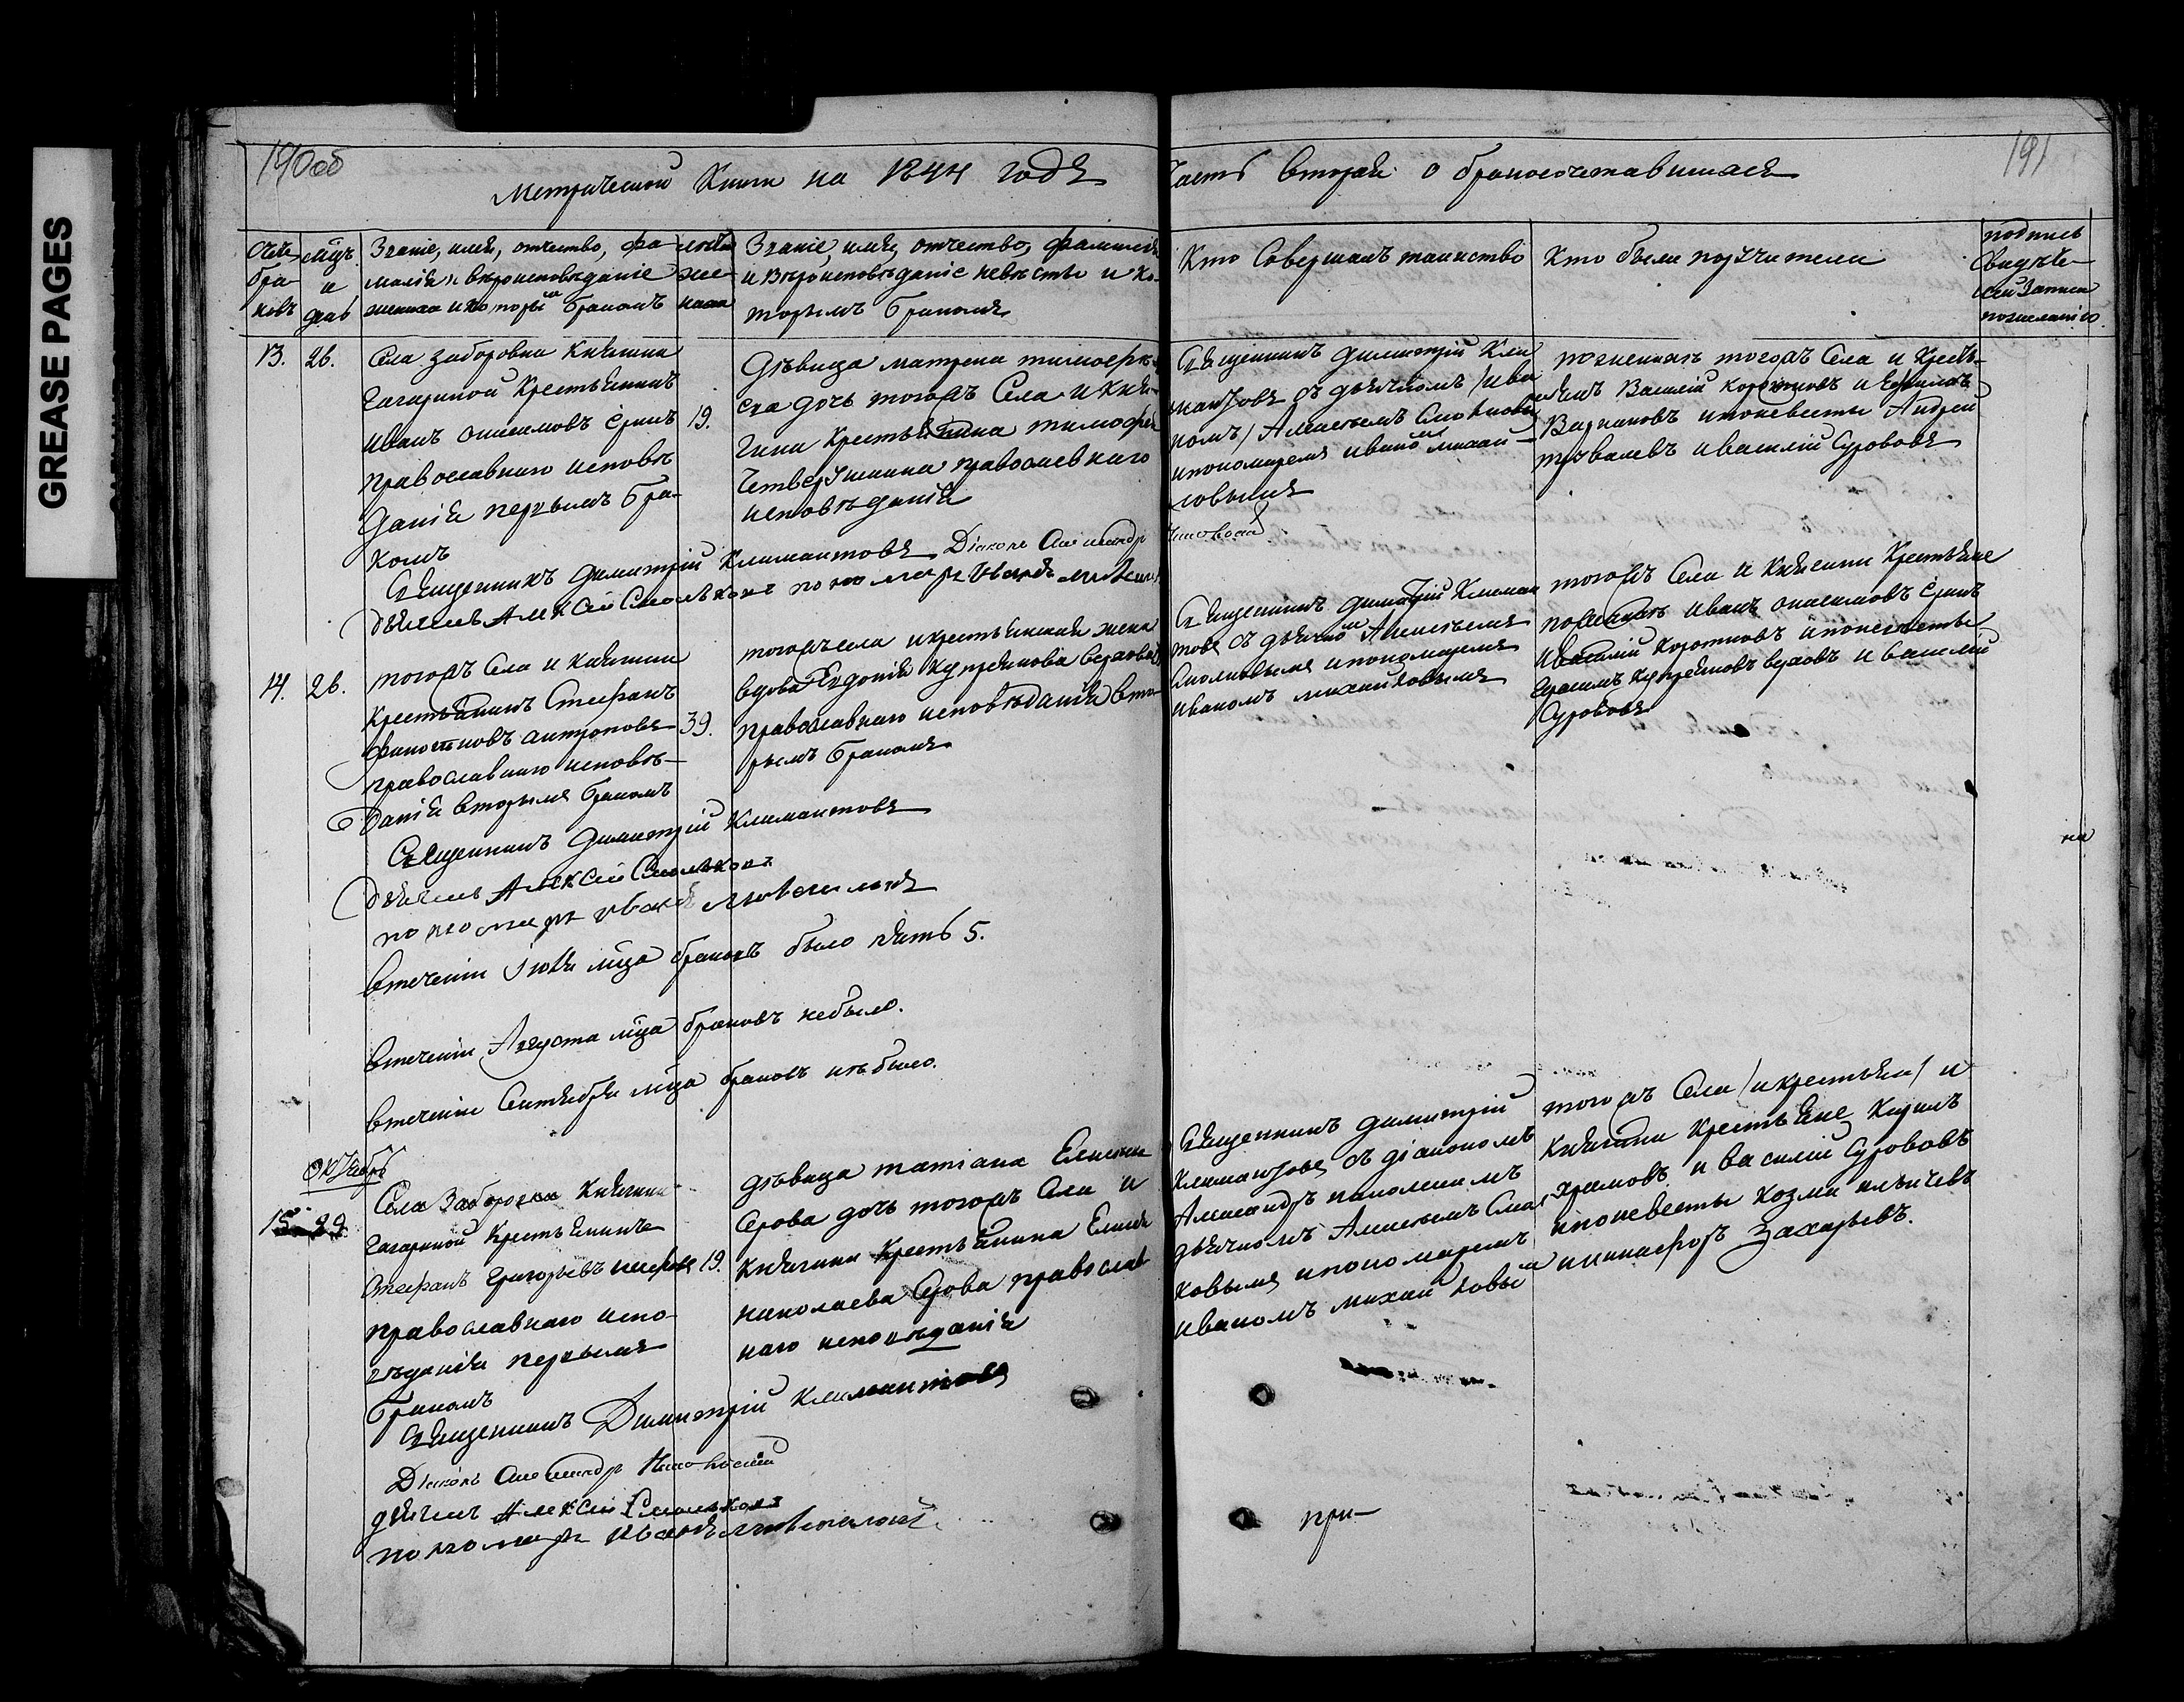 GREASE PAGES
190об
Метрической Книги на 1844 годъ
Часть вторая о бракосочетавшихся
191
Счетъ браковъ
мцъ и день
Званіе, имя, отчество, фамилія и вѣроисповѣданіе жениха и которымъ бракомъ
лѣта жениха
Званіе, имя, отчество, фамилія и вѣроисповѣданіе невѣсты и которымъ бракомъ
Кто совершалъ таинство
Кто были поручители
подпись свидѣтелей записи по желанію
13. 26.
Села Заборовки Княгини
Гагариной крестьянинъ
Иванъ Онисимовъ
православнаго исповѣ
данія первымъ бра-
комъ
19.
Дѣвица Матрена Тимофѣе
ва дочь тогожъ Села и Кня
гини Крестьянина Тимофея
православнаго
исповѣданія
Священникъ Димитрій Кли
мантовъ съ дьячкомъ /ива
номъ/ Алексѣемъ Смольковы
ипономаремъ иваномъ михай-
ловымъ
по женихѣ тогожъ Села и Крестья-
нинъ Василій Коротковъ и Ефимъ
ипоневесты Андрей
ивасилій Сурововъ
Священникъ Димитрій Климантовъ Діаконъ Александръ
дьячекъ Алексѣй Смольковъ пономарь Иванъ
14. 26.
тогожъ Села и Княгини
Крестьянинъ Стефанъ
антроповъ
православнаго исповѣ-
данія вторымъ бракомъ
39.
тогожъ села икрестьянская жена
вдова Евдокія Купреянова
православнаго исповѣданія вто-
рымъ бракомъ
Священникъ Димитрій Климан
товъ съ дьячкомъ Алексѣемъ
Смольковымъ ипономаремъ
иваномъ михайловымъ
тогожъ Села и Княгини Крестьяне
по женихѣ иванъ онисимовъ
ивасилій Коротковъ ипоневесты
Герасимъ Купреяновъ и василій
Сурововъ
Священникъ Димитрій Климантовъ
дьячекъ Алексѣй Смольковъ
пономарь Иванъ
втеченіи Іюля мца браковъ было пять 5.
втеченіи Августа мца браковъ небыло.
втеченіи Сентября мца браковъ небыло.
Октябрь
15.
Села Заборовки Княгини
Гагариной Крестьянинъ
Стефанъ Григорьевъ
православнаго испо-
вѣданія первымъ
бракомъ
19.
дѣвица татіана
Серова дочь тогожъ Села и
Княгини Крестьянина
николаева Серова православ
наго исповѣданія
Священникъ Димитрій
Климантовъ съ діакономъ
Александръ
дьячкомъ Алексѣемъ Смол
ковымъ ипономаремъ
иваномъ михайловымъ
тогожъ Села /икрестьяни/ и
Княгини Крестьяне
и василій Сурововъ
ипоневесты Козма ильичевъ
Захарьевъ.
Священникъ Димитрій Климантовъ
Діаконъ Александръ
дьячекъ Алексѣй Смольковъ
пономарь Иванъ
на
при-